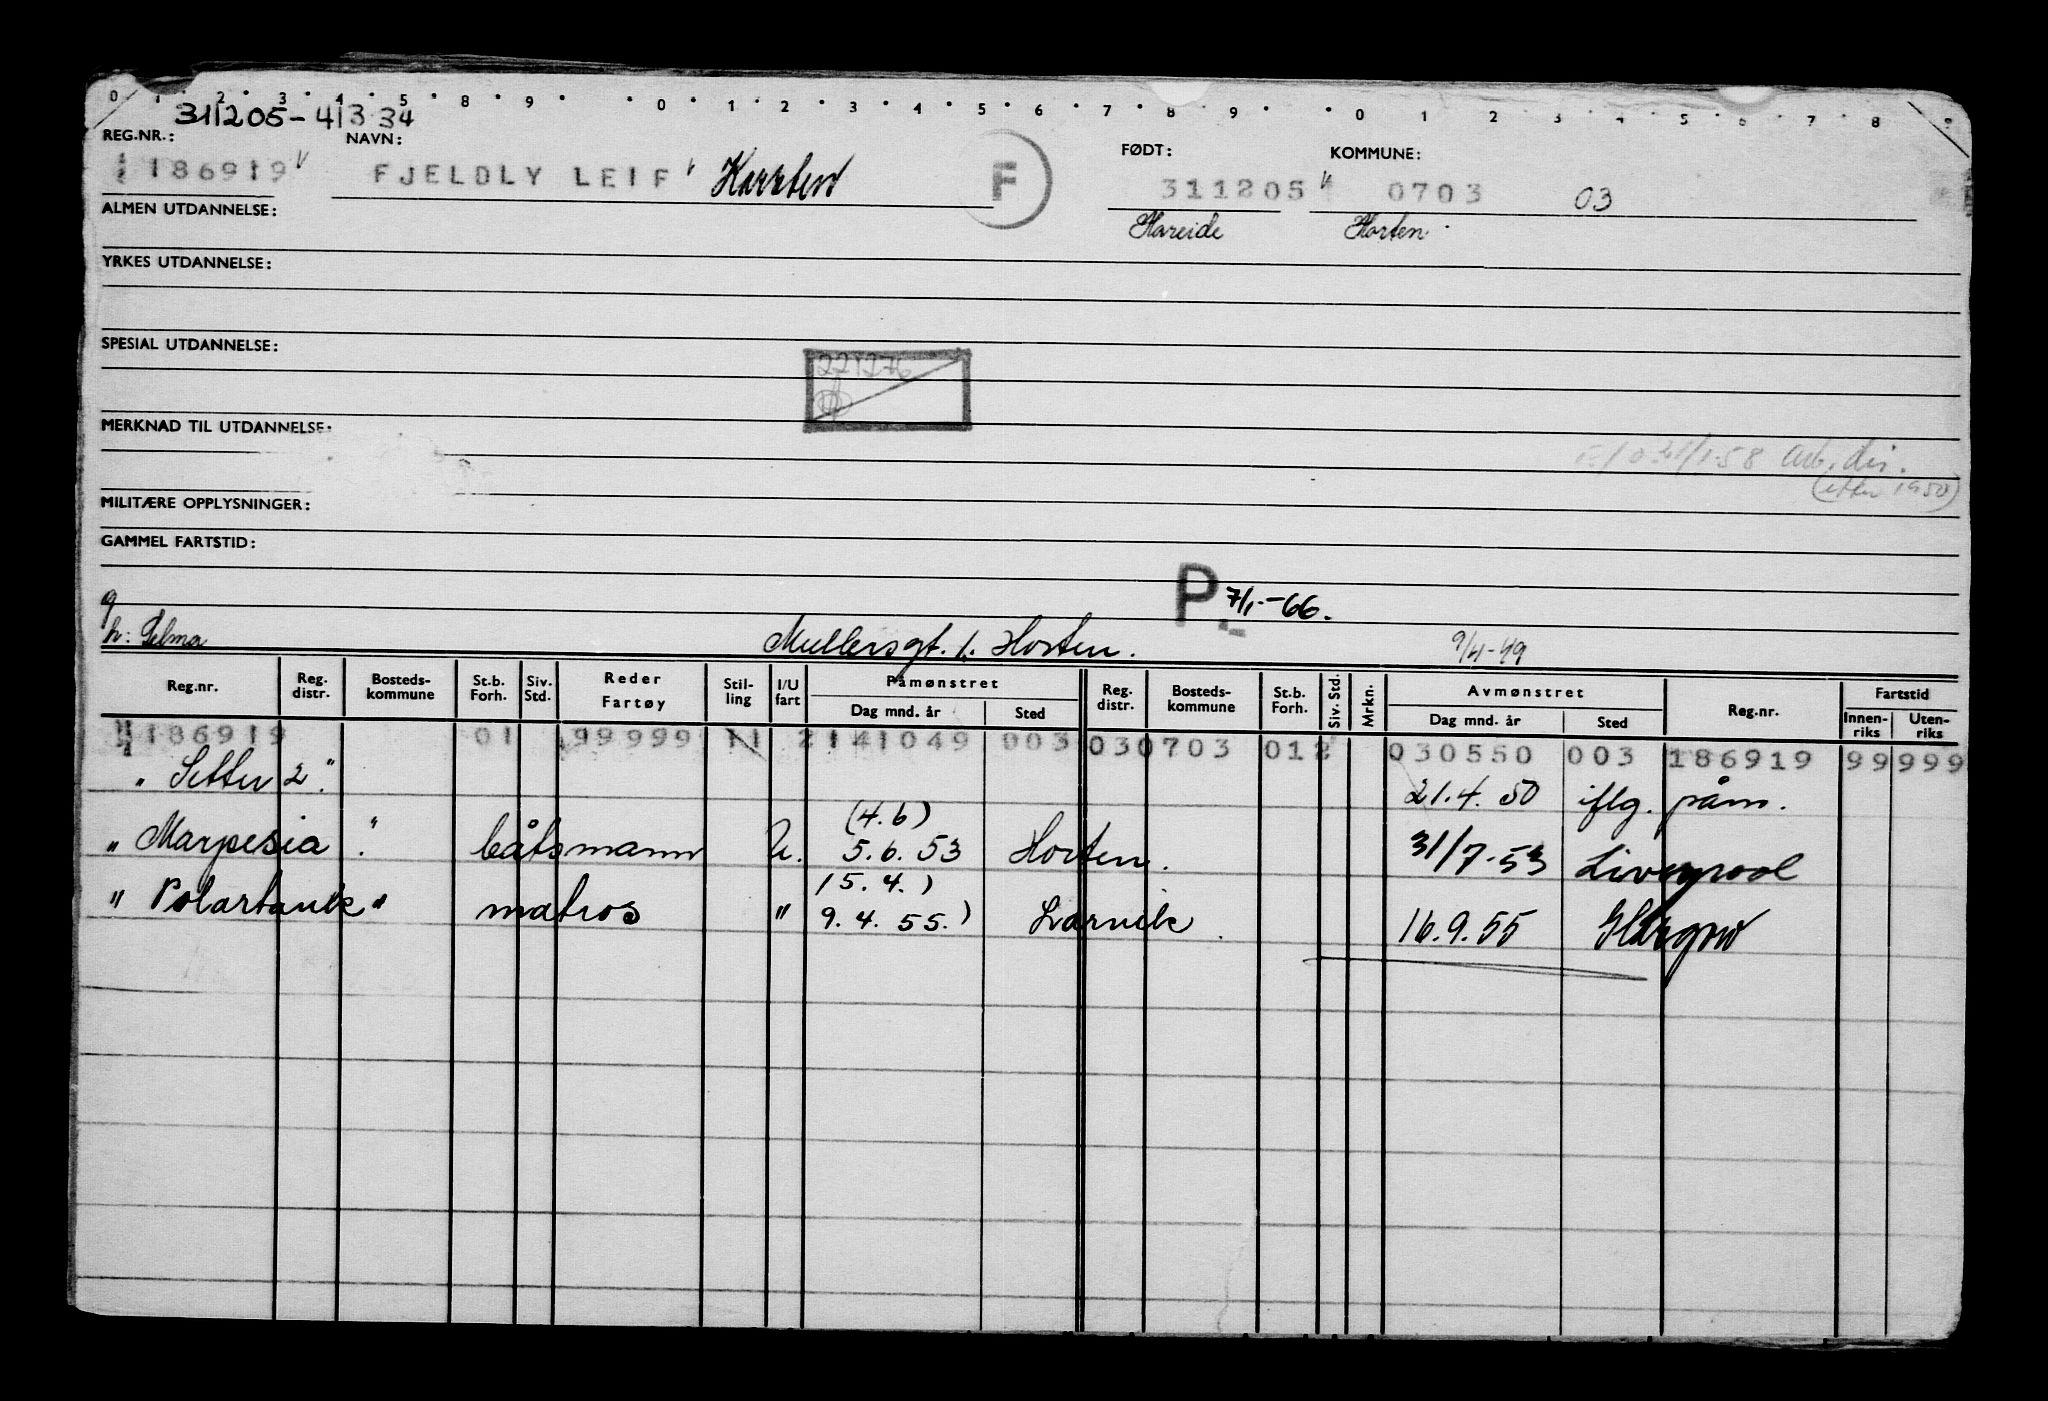 0 1 2 3 4 5 8 9 0 1 2 3 4 5 6 7 8 9 0 1 2 3 4 5 6 7 8
311205-41334
REG.NR.: NAVN: FØDT: KOMMUNE:
186919 FJELDLY LEIF Karsten F 311205 0703 03
ALMEN UTDANNELSE: Hareide Horten
YRKES UTDANNELSE:
SPESIAL UTDANNELSE:
221276
MERKNAD TIL UTDANNELSE:
Arb. dir.
(etter 1950)
MILITÆRE OPPLYSNINGER:
GAMMEL FARTSTID:
P. 7/1-66.
g
h: Selma Mullersgt. 1. Horten. 9/4-49
Reg.nr. Reg. distr. Bosteds-kommune St.b. Forh. Siv. Std. Reder Fartøy Stil-ling I/U fart Påmønstret Dag mnd. år Sted Reg. distr. Bosteds-kommune St.b. Forh. Siv. Std. Mrkn. Avmønstret Dag mnd. år Sted Reg.nr. Fartstid Innen-riks Uten-riks
186919 01 99999 11 2 141049 003 03 0703 012 030550 003 186919 99 999
"Setter 2" 21.4.50 iflg. påm.
"Marpesia" båtsmann U. (4.6) 5.6.53 Horten. 31/7-53 Liverpool
"Polartank" matros " 15.4.) 9.4.55.) Larvik 16.9.55 Glasgow